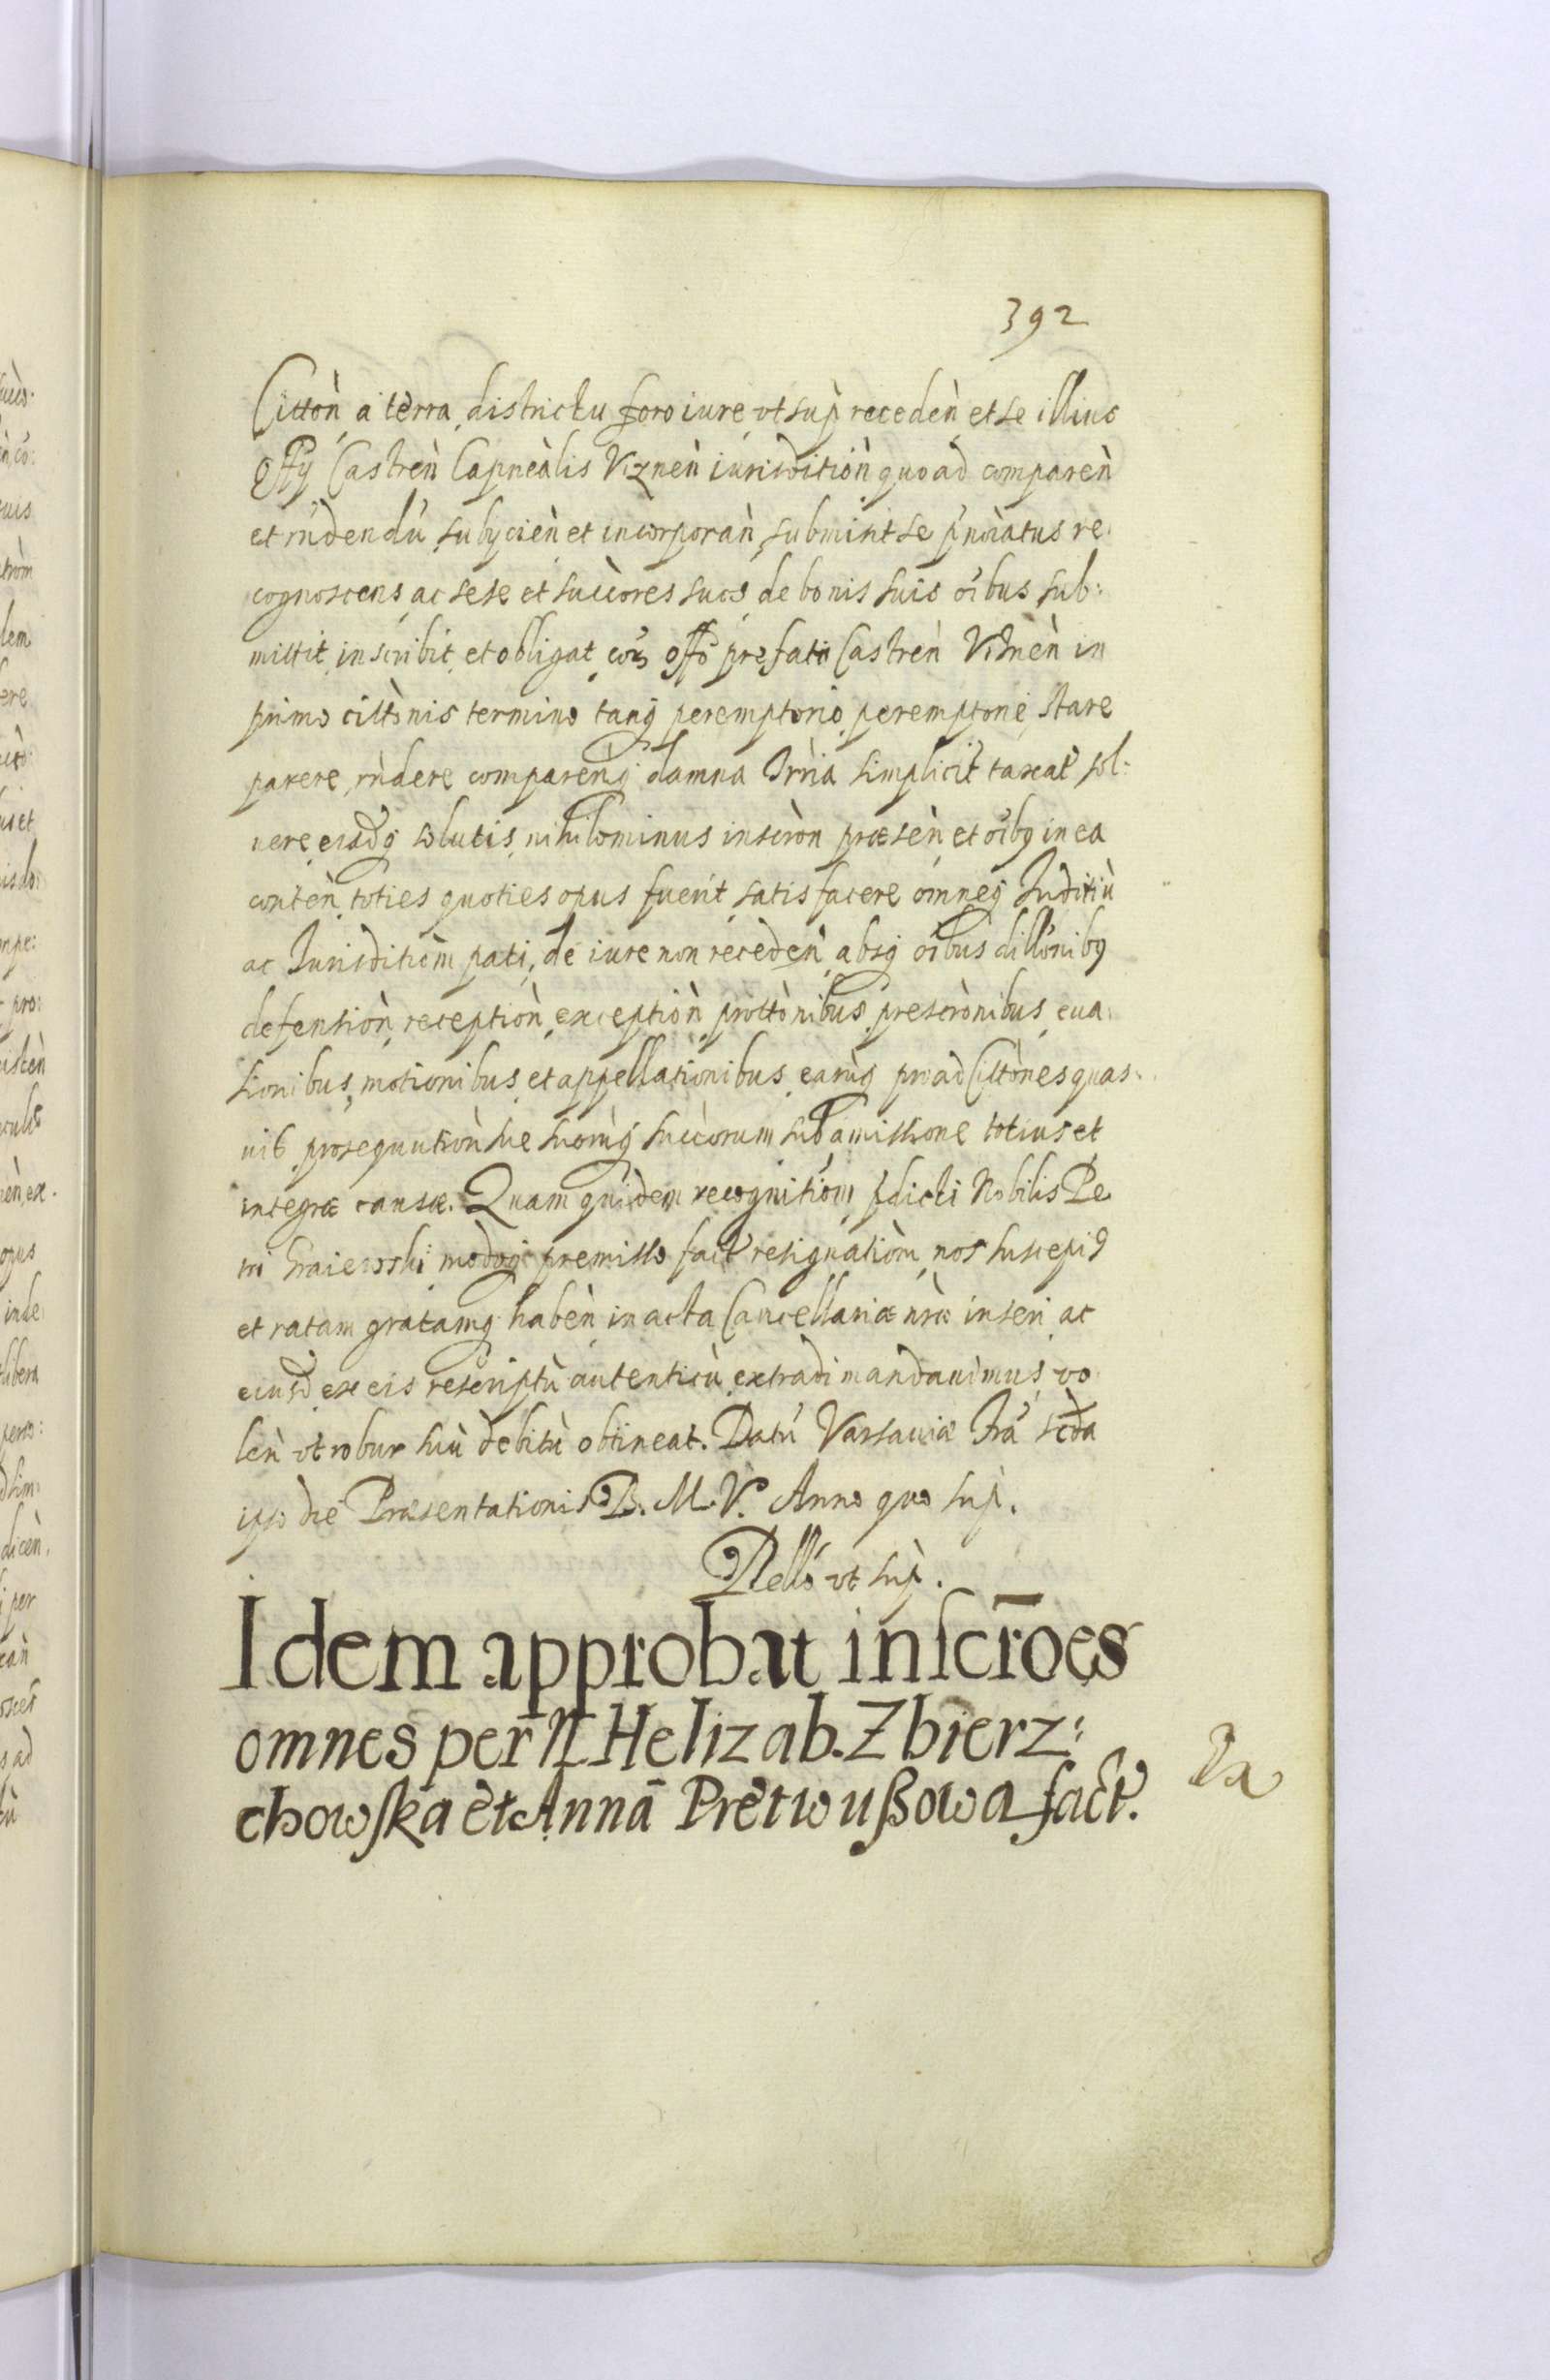 392
Cittōn a terra districtu foro iure vt sup receden et se illius
Offÿ Castren Capnealis Viznen iurisdition quo ad comparen
et rndendū subycien et incorporan submisit se pnoiatus re
cognoscens ac sese et succores suos de bonis suis oibus sub:
mittit inscribit et obligat corā offo prefato Castren Viznen in
primo citto̅nis termino tanq̃ peremptorio peremptorie stare
parere rndere comparenq̃ damna Irria simplicit taxat sol:
uere eisdq̃ solutis nihilominus inscron præsen et oibq in ea
conten toties quoties opus fuerit satisfacere omneq̃ Juditiū
ac Jurisditiom pati, de iure non receden absq̃ oibus dillonibq
defention reception exception prottonibus prescronibus eua
sionibus motionibus et appellationibus earuq̃ pro ad Cittones quas
uis prosequution sue suoruq̃ succorum sub amissione totius et
integræ causæ. Quam quidem recognitiom pdicti Nobilis Pe
tri Graiewski modoq̃ premisso fact resignatiom nos suscepis
et ratam gratamq̃ haben in acta Cancellariæ nræ inseri ac
eiusd ex eis rescriptū autenticū extradi mandauimus vo
len vt robur suū debitū obtineat. Datū Varsauiæ fra scda
ipso die Præsentationis B. M. V. Anno quo sup.
Rello vt sup.
Idem approbat inscrōes
omnes per N. Helizab. Zbierz:
chowska et Annā Pretwußowa fact.